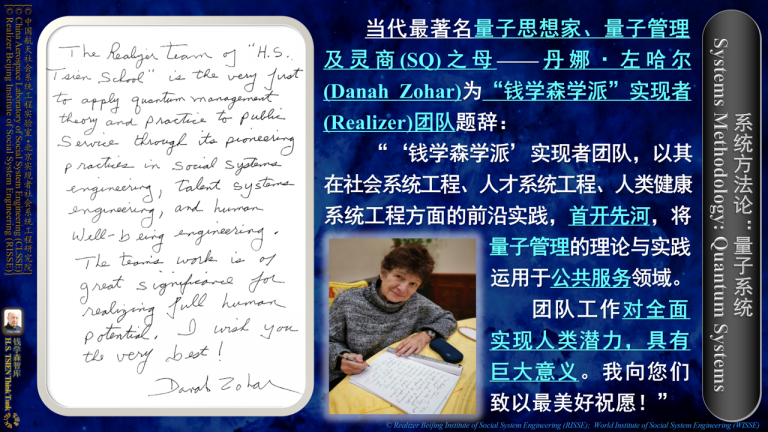 © 中国航天社会系统工程实验室·北京实现者社会系统工程研究院
© China Aerospace Laboratory of Social System Engineering (CLSSE)
© Realizer Beijing Institute of Social System Engineering (RISSE)
钱学森智库
H.S. TSIEN Think Tank
The Realizer team of "H.S.
Tsien School" is the very first
to apply quantum management
theory and practice to public
service through its pioneering
practices in social systems
engineering, talent systems
engineering, and human
well-being engineering.
The team's work is of
great significance for
realizing full human
potential. I wish you
the very best!
Danah Zohar
当代最著名量子思想家、量子管理
及灵商(SQ)之母——丹娜·左哈尔
(Danah Zohar)为“钱学森学派”实现者
(Realizer)团队题辞：
“‘钱学森学派’实现者团队，以其
在社会系统工程、人才系统工程、人类健康
系统工程方面的前沿实践，首开先河，将
量子管理的理论与实践
运用于公共服务领域。
团队工作对全面
实现人类潜力，具有
巨大意义。我向您们
致以最美好祝愿！”
系统方法论：量子系统
Systems Methodology: Quantum Systems
© Realizer Beijing Institute of Social System Engineering (RISSE); World Institute of Social System Engineering (WISSE)